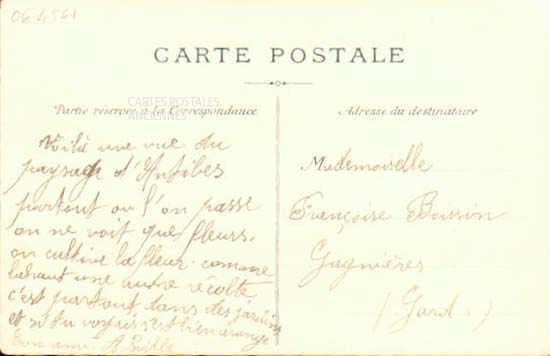 064561
CARTE POSTALE
CARTES POSTALES
ANCIENNES
Partie réservée à la Correspondance
Adresse du destinataire
Voilà une vue du
paysage d'Antibes
partout ou l'on passe
on ne voit que fleurs.
on cultive la fleur comme
labaut une autre récolte
c'est partout dans des jardins
et si tu voyais s'est bien arrangé
ton ami A
Mademoiselle
Françoise Boissin
Gagnières
(Gard.)